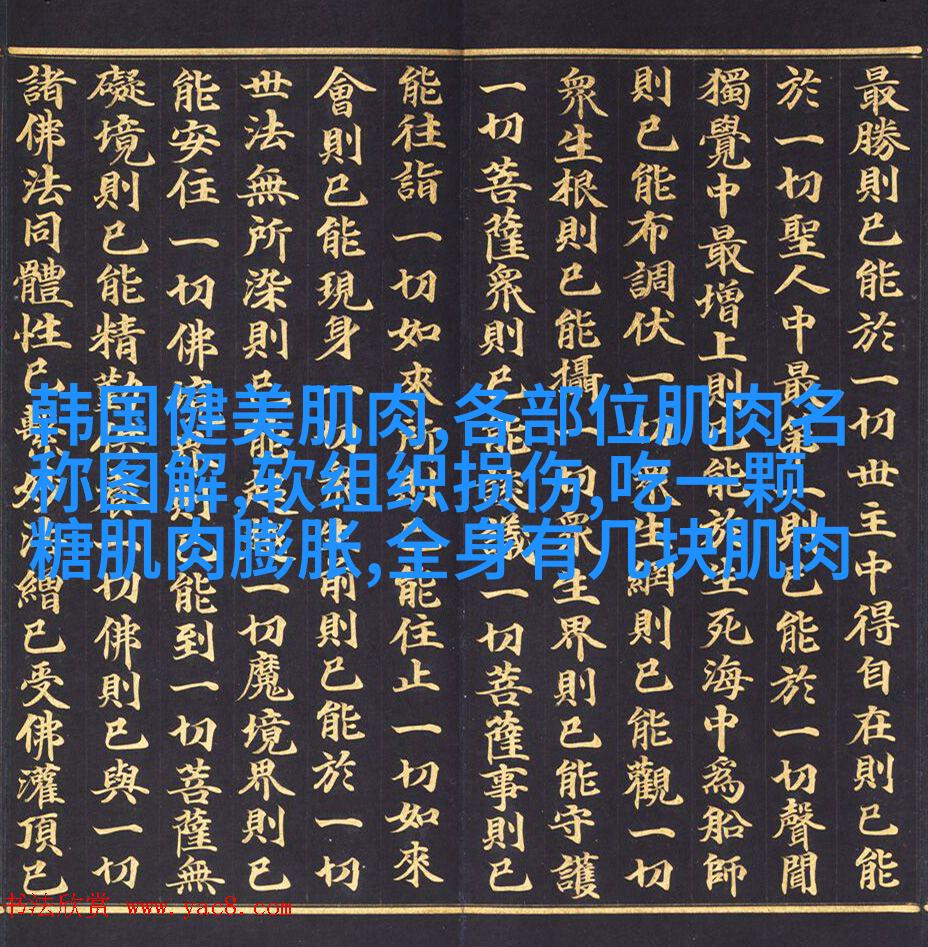 最勝則已能於一切世主中得自在則已能
於一切聖人中最則已能於一切聲聞
獨覺中最增上則已能於生死海中爲船師
則已能布調伏一切衆生網則已能觀一切
衆生根則已能攝一切衆生界則已能守護
一切菩薩衆則已能議一切菩薩事則已
能往詣一切如來所則已能住止一切如來
會則已能現身一切前則已能於一切
世法無所染則已能一切魔境界則已
能安住一切佛境界則已能到一切菩薩無
礙境則已能精勤一切佛則已與一切
諸佛法同體性已法繒已受佛灌頂已
韩国健美肌肉,各部位肌肉名
称图解,软组织损伤,吃一颗
糖肌肉膨胀,全身有几块肌肉
书法欣赏 www.yac8.com